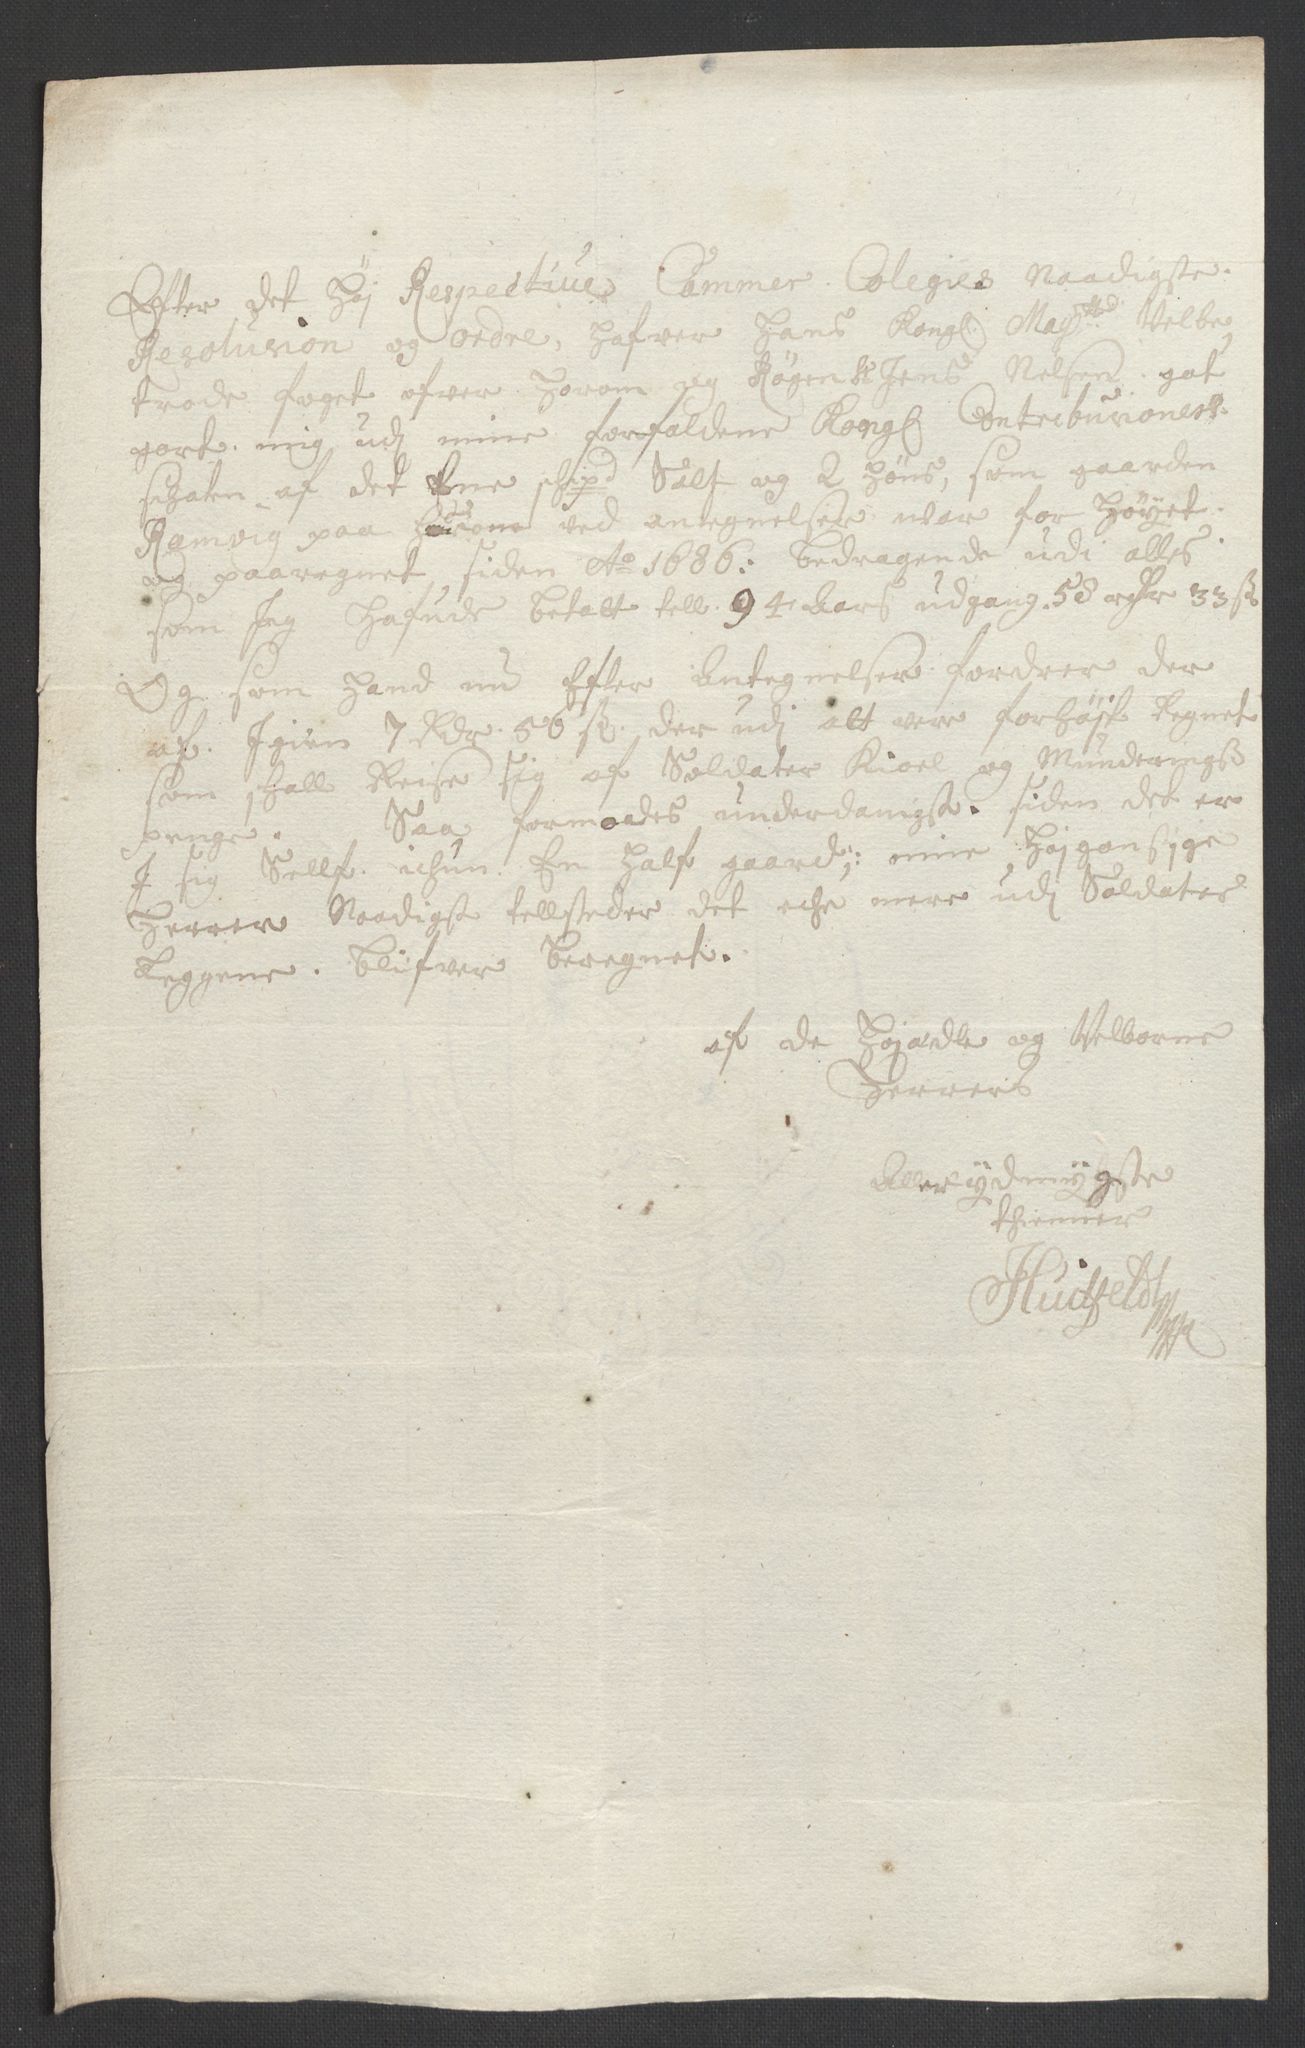 Efter det høj Respective Cammer Colegies Naadigste
Resolusion og ordre, hafver hans Kongl Maytts Velbe,
trode foget ofver Jorom og Røgen Sr Jens Nelsen got
giort mig udj mine forfaldene Kongl Contribusioners
schater af det Ene schipd Salt og 2 høns, som gaarden
Ramvig paa ved antegnelser war for høyet
og paaregnet siden Ao 1686: bedragende udi alles
som Jeg hafude betalt till 9 4 Aars udgang 58 rdr 33 s
Og som hand nu Efter Antegnelser fordrer der
af Igien 7 Rdr 56 s. der udj alt vere forhøjt Regnet
som schall Reise sig af Soldater Kioel og Munderings
penge. Saa formodes underdanigst, siden det er
J sig Sellf ichun En half gaard; mine høj gunstige
Herrer Naadigst tillsteder det eche mere udj Soldater
Leggene blifver beregnet.
af de højædle og Velborne
Herrers
Allerÿdmÿgste
thienner
JHuidfeldt